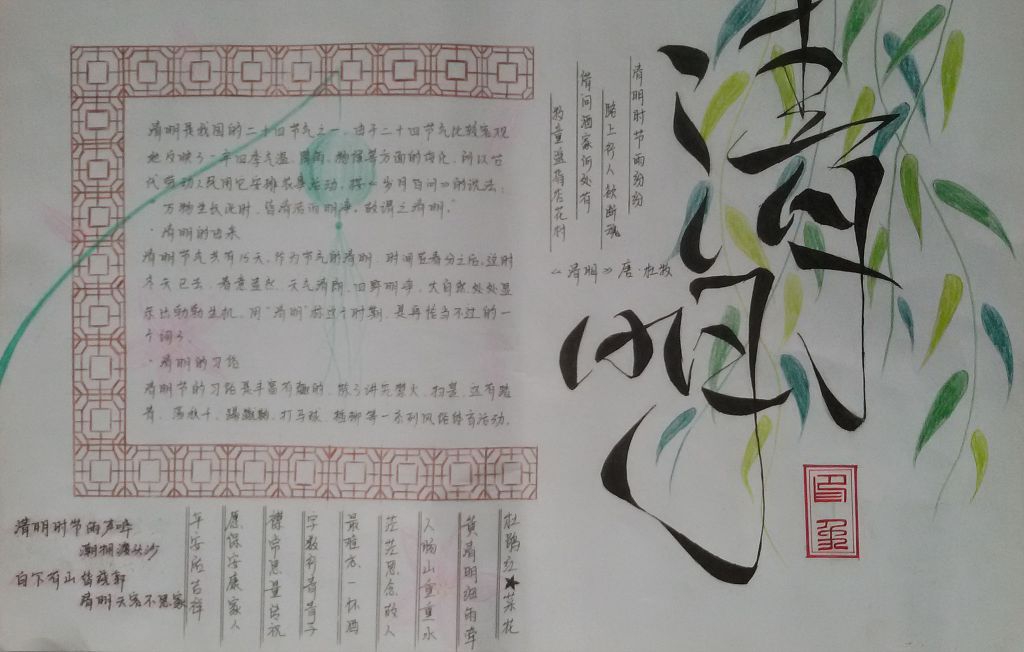 清明是我国的二十四节气之一。由于二十四节气比较客观
地反映了一年四季气温、降雨、物候等方面的变化,所以古
代劳动人民用它安排农事活动。按《岁月百问》的说法:
万物生长此时,皆清洁而明净。故谓之清明。”
·清明的由来
清明节气共有15天。作为节气的清明,时间在春分之后。这时
冬天已去,春意盎然,天气清朗,四野明净,大自然处处显
示出勃勃生机。用“清明”称这个时期,是再恰当不过的一
个词了。
·清明的习俗
清明节的习俗是丰富有趣的,除了讲究禁火、扫墓,还有踏
青、荡秋千、蹴鞠、打马球、插柳等一系列风俗体育活动。
清明
清明时节雨纷纷
路上行人欲断魂
借问酒家何处有
牧童遥指杏花村
《清明》唐·杜牧
杜鹃红★菜花
黄清明细雨牵
人肠山重重水
茫茫思念故人
最难忘一杯酒
字数行青青子
襟常思量总祝
愿保安康家人
年安所吉祥
清明时节雨声哗
潮拥渡头沙
清明天客不思家